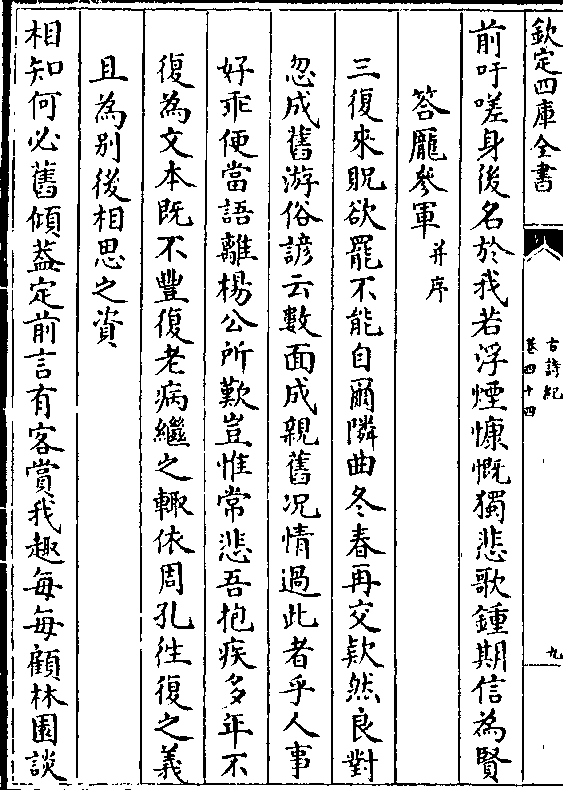 欽定四庫全書
古詩紀
卷四十四
九
前吁嗟身後名於我若浮煙慷慨獨悲歌鍾期信為賢
答龐參軍并序
三復來貺欲罷不能自爾隣曲冬春再交欵然良對
忽成舊游俗諺云數面成親舊况情過此者乎人事
好乖便當語離楊公所歎豈惟常悲吾抱疾多年不
復為文本既不豐復老病繼之輙依周孔徃復之義
且為别後相思之資
相知何必舊傾葢定前言有客賞我趣每每顧林園談